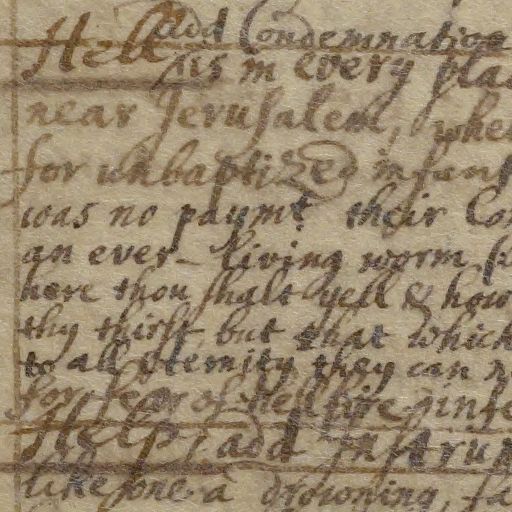 Hell add Condemnation
us in every plac
near Jerusalem, whe
for unbaptized infant
was no paymt their Con
an ever-living worm
here thou shalt yell & how
thy thirst, but that which
to all eternity they can n
for fear of hell fire infe
Help, add Instru
like one a drowning, fa